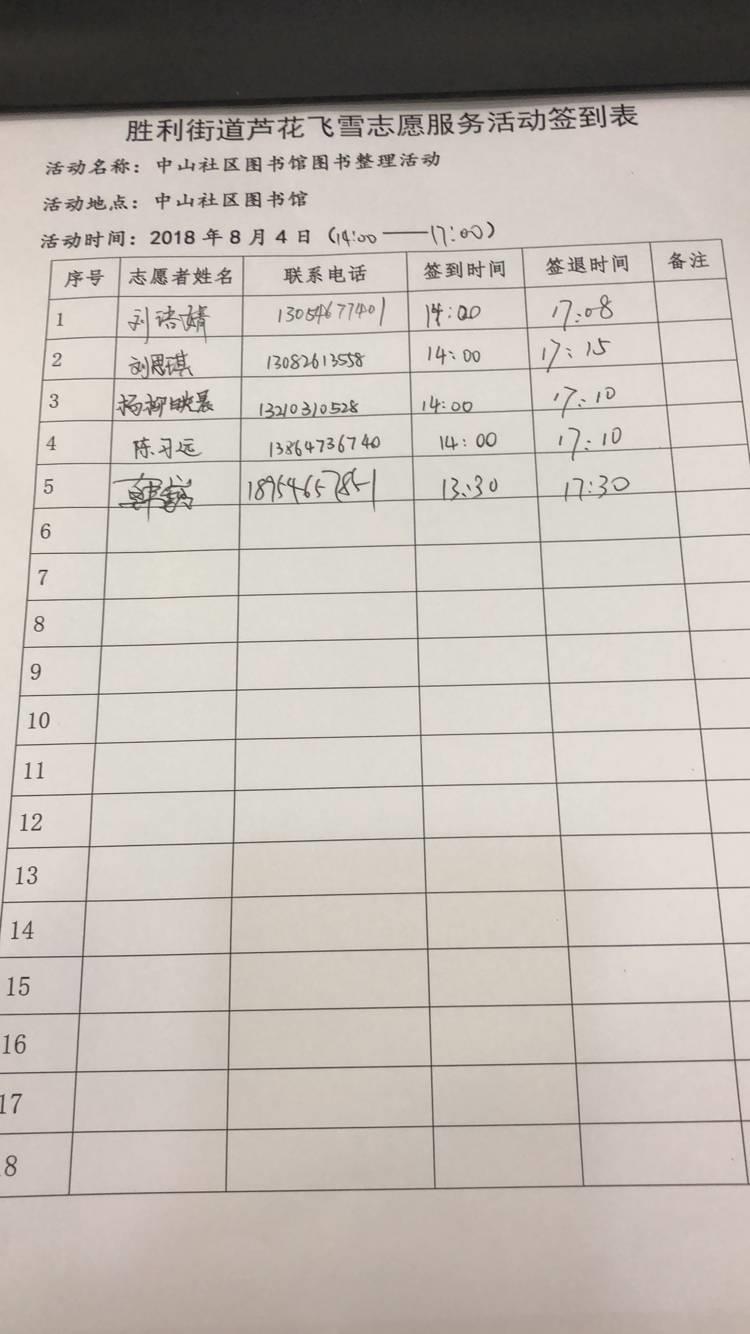 胜利街道芦花飞雪志愿服务活动签到表
活动名称：中山社区图书馆图书整理活动
活动地点：中山社区图书馆
活动时间：2018 年 8 月 4 日（14:00——17:00）
序号 志愿者姓名 联系电话 签到时间 签退时间 备注
1 刘语婧 13054677401 14:00 17:08
2 刘思琪 13082613558 14:00 17:15
3 杨柳映晨 13210310528 14:00 17:10
4 陈习远 13864736740 14:00 17:10
5 18954657851 13:30 17:30
6
7
8
9
10
11
12
13
14
15
16
17
8